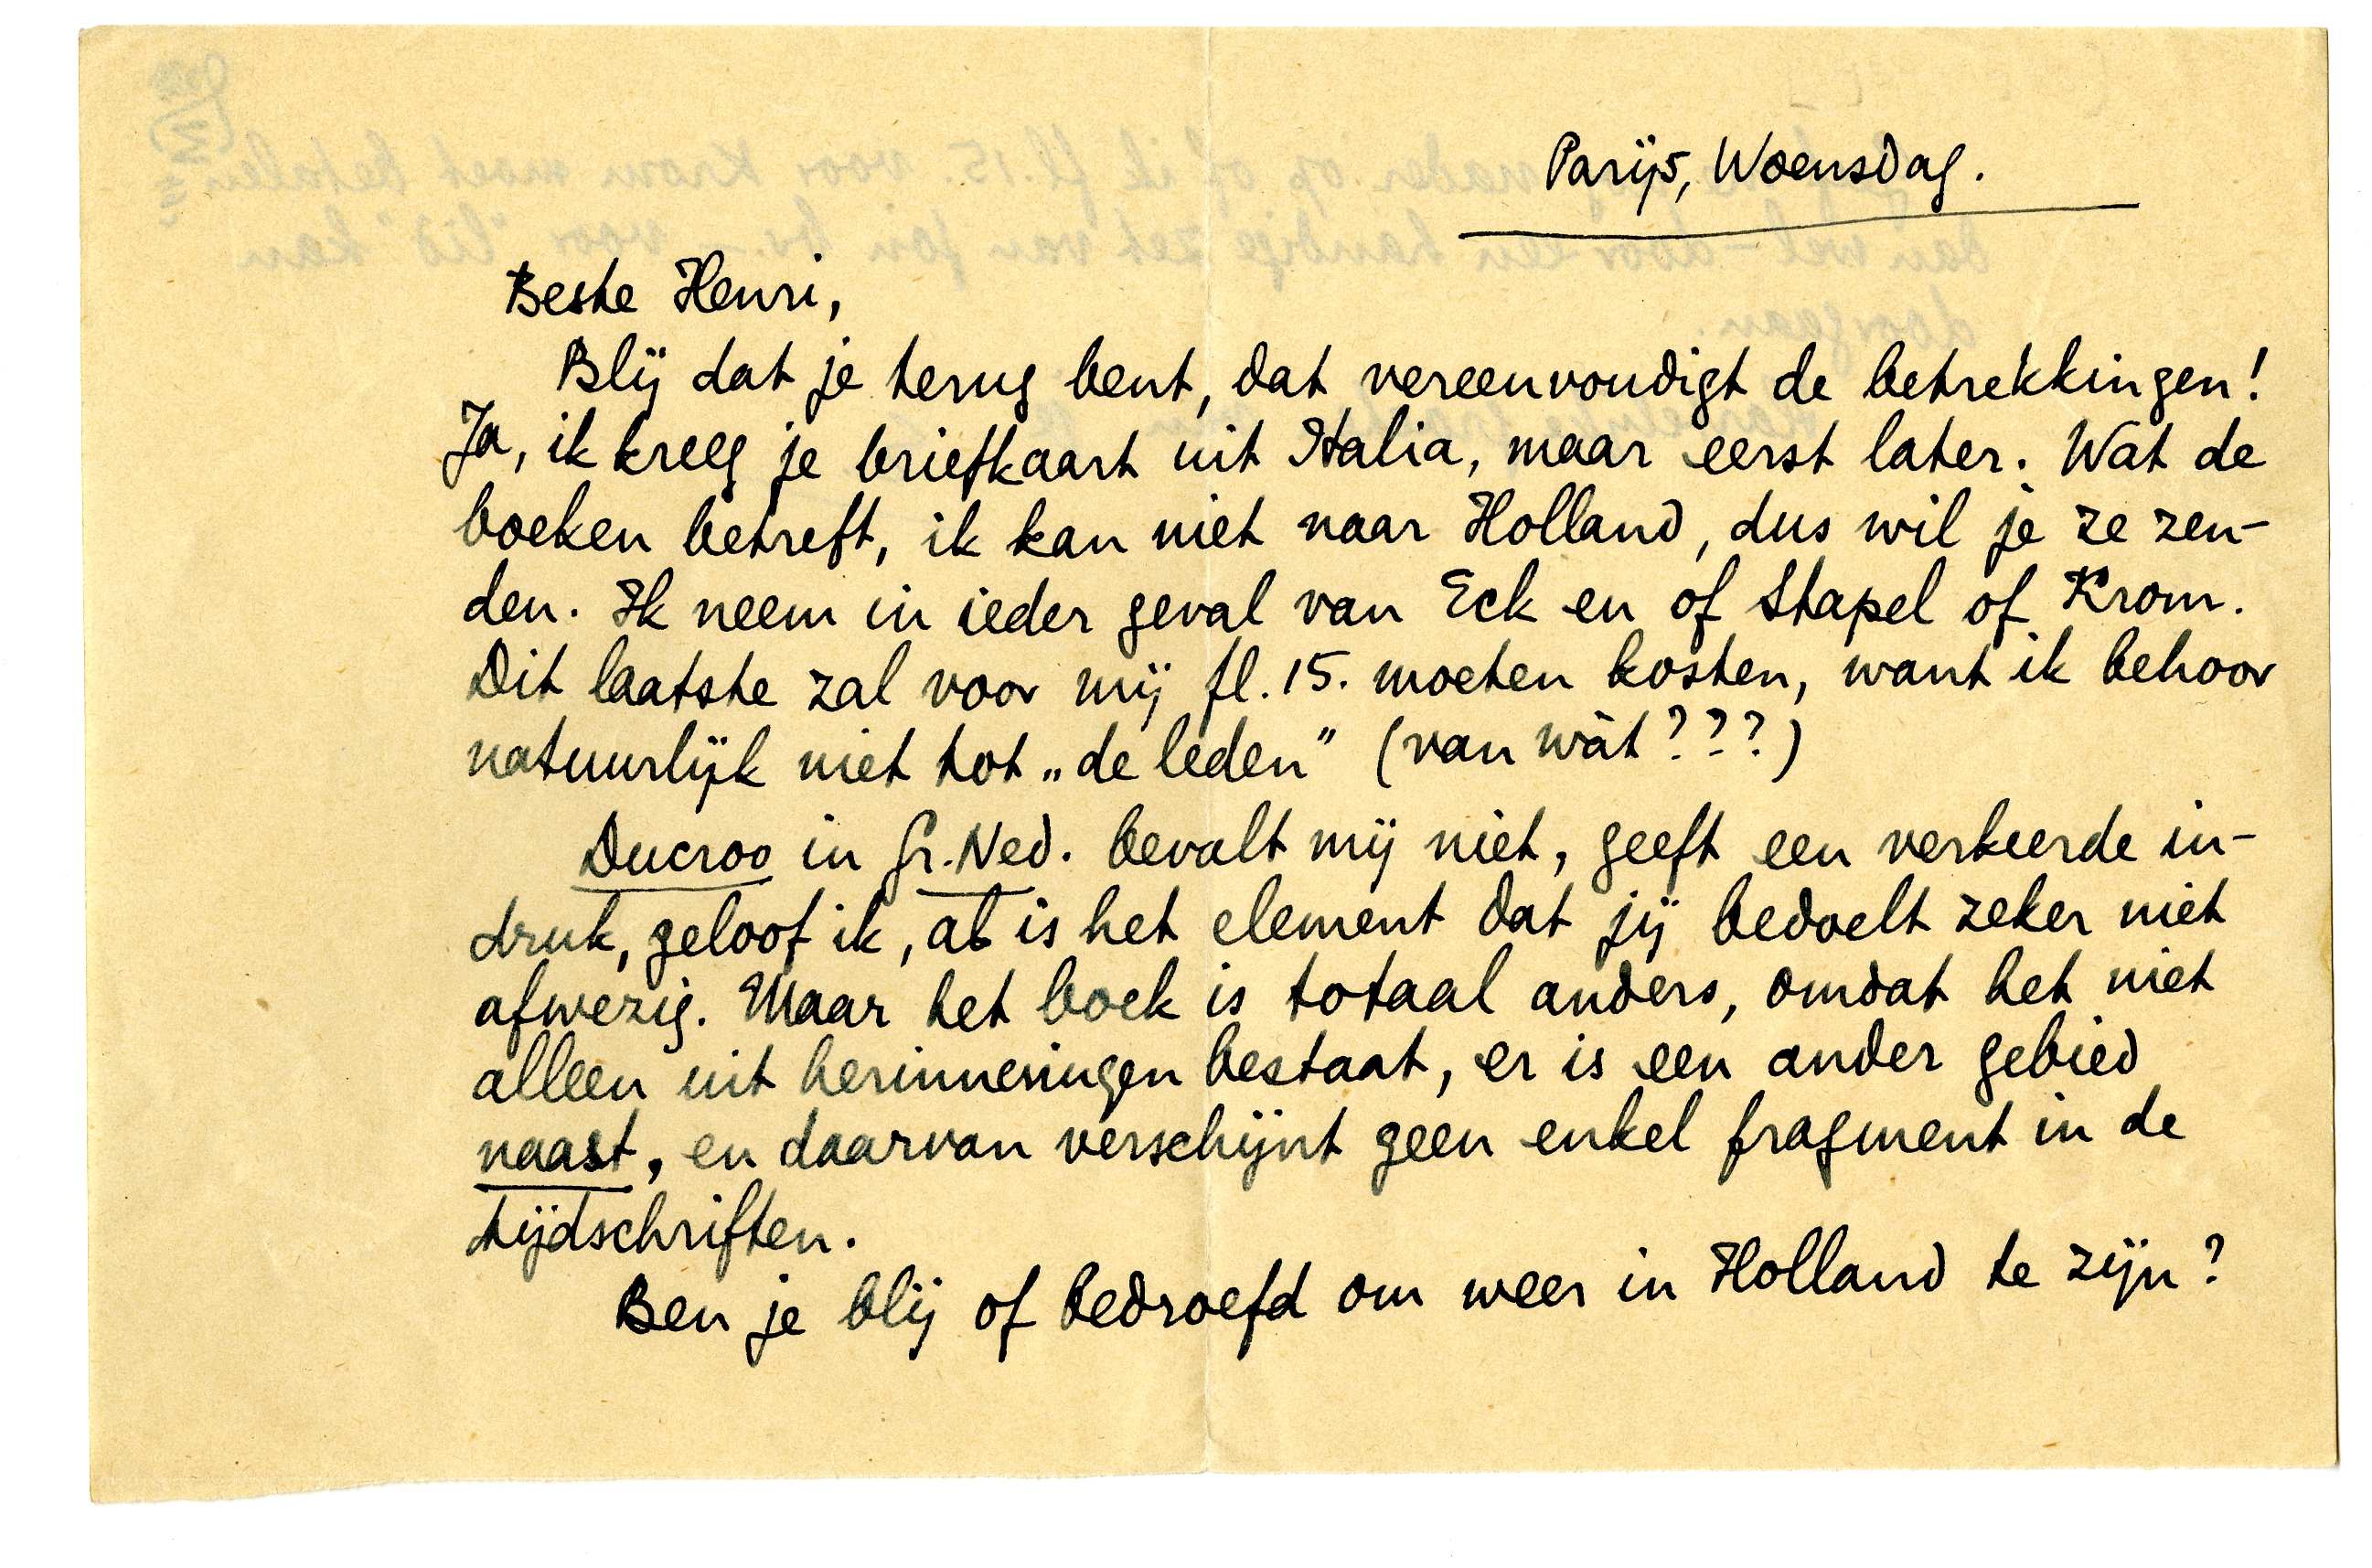 Parijs, Woensdag.
Beste Henri,
Blij dat je terug bent, dat vereenvoudigt de betrekkingen!
Ja, ik kreeg je briefkaart uit Italia, maar eerst later. Wat de
boeken betreft, ik kan niet naar Holland, dus wil je ze zen-
den. Ik neem in ieder geval van Eck en of Stapel of Krom.
Dit laatste zal voor mij fl. 15. moeten kosten, want ik behoor
natuurlijk niet tot „de leden” (van wàt???)
Ducroo in Gr. Ned. bevalt mij niet, geeft een verkeerde in-
druk, geloof ik, al is het element dat jij bedoelt zeker niet
afwezig. Maar het boek is totaal anders, omdat het niet
alleen uit herinneringen bestaat, er is een ander gebied
naast, en daarvan verschijnt geen enkel fragment in de
tijdschriften.
Ben je blij of bedroefd om weer in Holland te zijn?